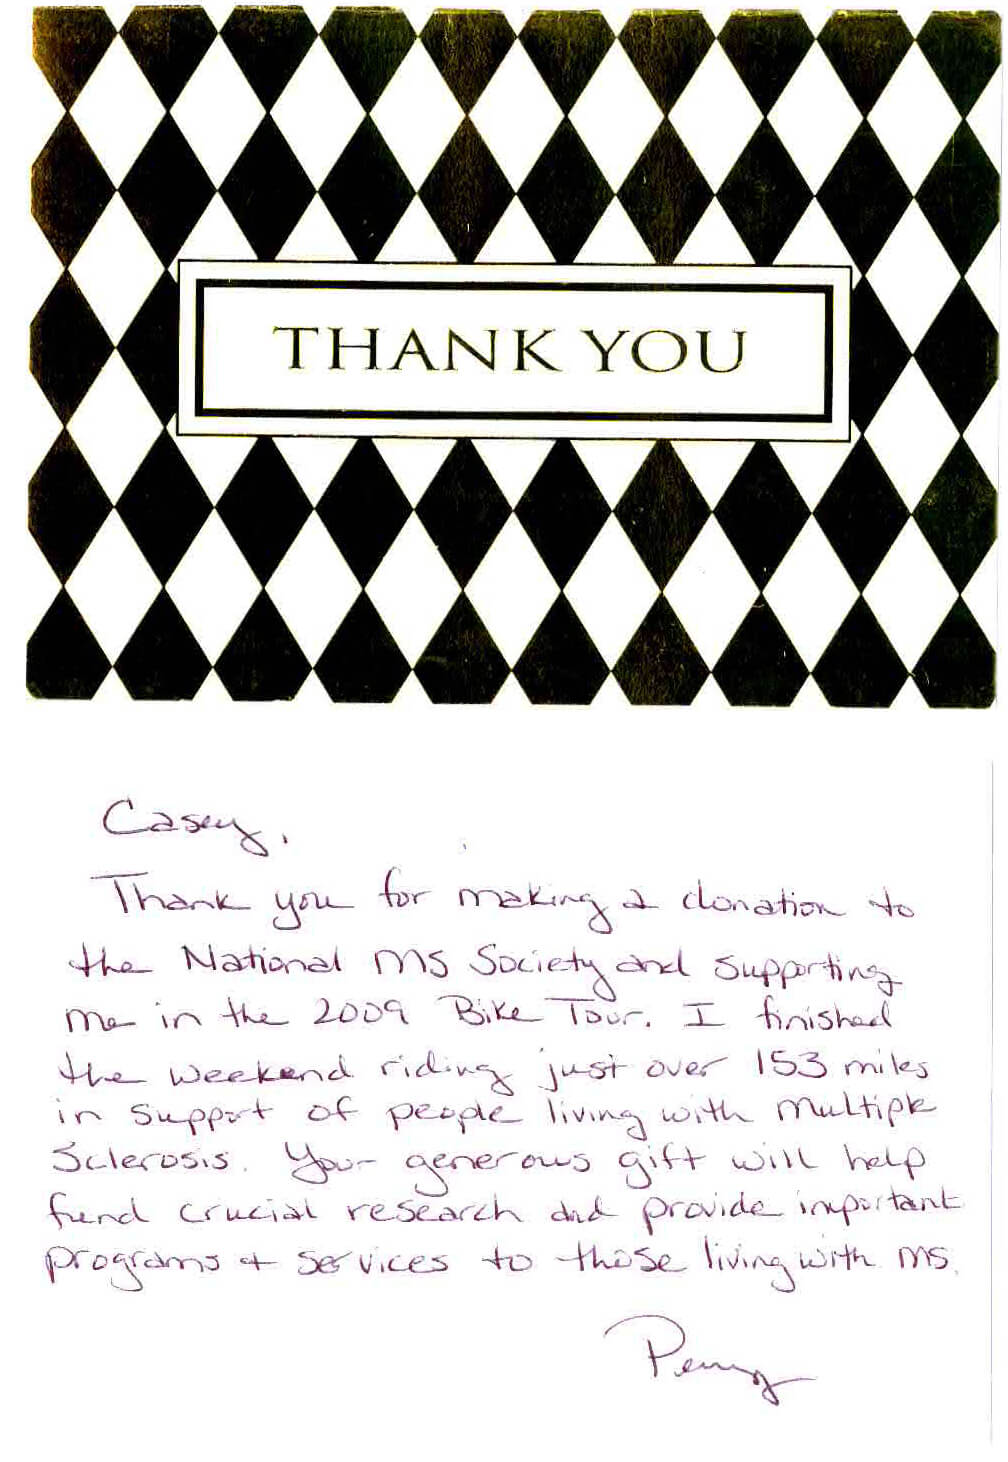 THANK YOU
Casey,
Thank you for making a donation to
the National MS Society and supporting
me in the 2009 Bike Tour. I finished
the weekend riding just over 153 miles
in support of people living with Multiple
Sclerosis. Your generous gift will help
fund crucial research and provide important
programs + services to those living with MS.
Penny